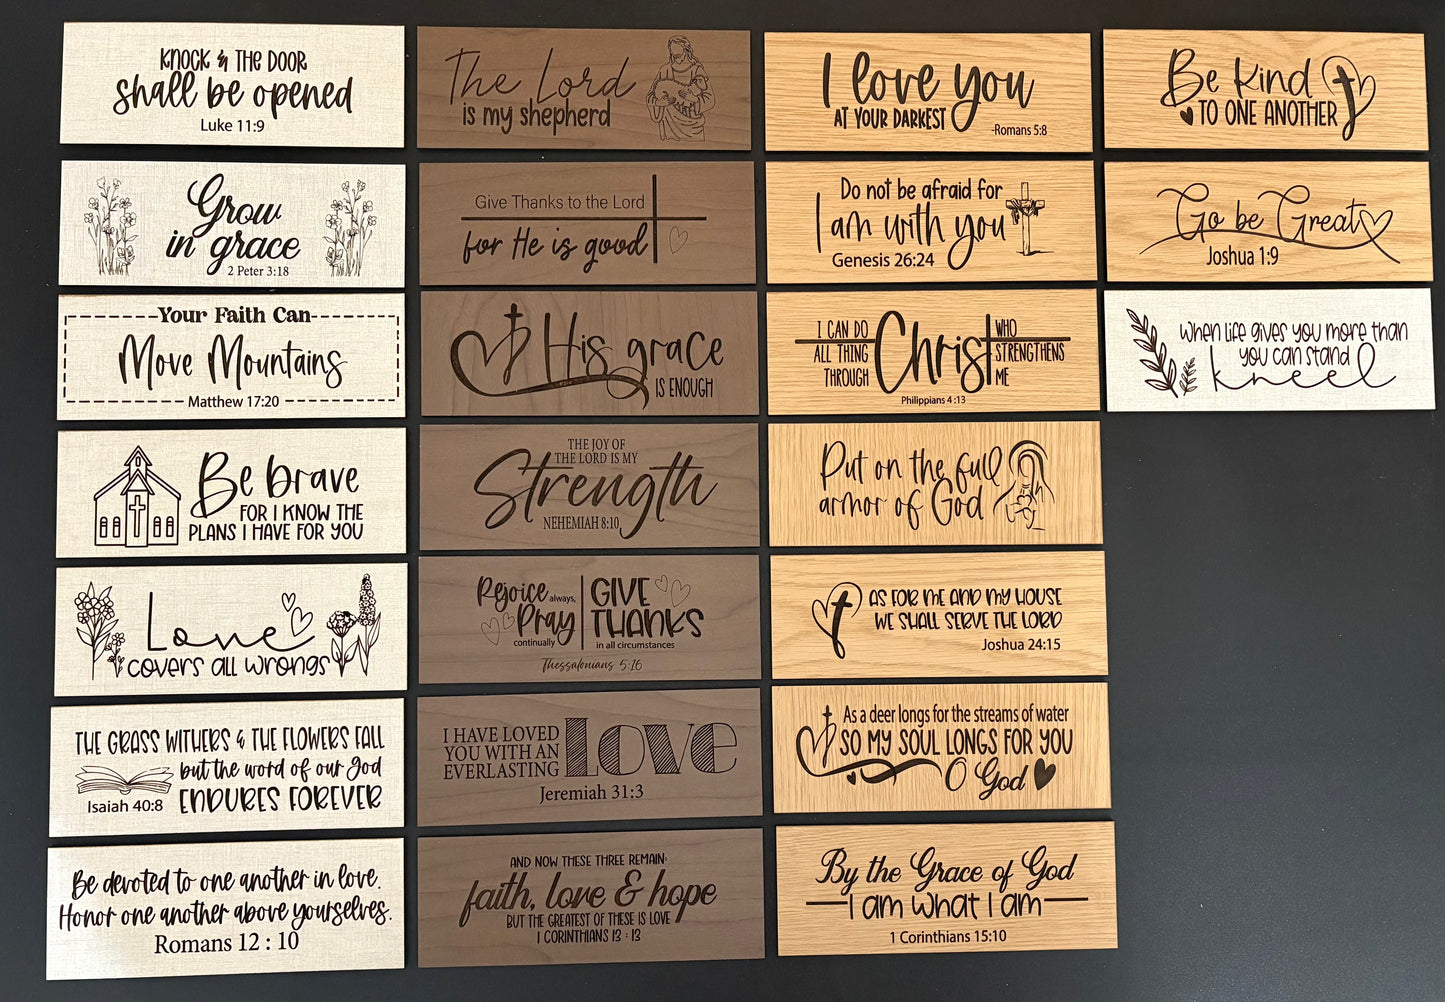 Knock & The Door
shall be opened
Luke 11:9
Grow
in grace
2 Peter 3:18
Your Faith Can
Move Mountains
Matthew 17:20
Be brave
FOR I KNOW THE
PLANS I HAVE FOR YOU
Love
covers all wrongs
THE GRASS WITHERS & THE FLOWERS FALL
but the word of our god
Isaiah 40:8
ENDURES FOREVER
Be devoted to one another in love.
Honor one another above yourselves.
Romans 12 : 10
The Lord
is my shepherd
Give Thanks to the Lord
for He is good
His grace
IS ENOUGH
THE JOY OF
THE LORD IS MY
Strength
NEHEMIAH 8:10
Rejoice always,
Pray
continually
GIVE
THANKS
in all circumstances
Thessalonians 5:16
I HAVE LOVED
YOU WITH AN
EVERLASTING
Love
Jeremiah 31:3
AND NOW THESE THREE REMAIN:
faith, love & hope
BUT THE GREATEST OF THESE IS LOVE
1 CORINTHIANS 13 : 13
I love you
AT YOUR DARKEST
-Romans 5:8
Do not be afraid for
I am with you
Genesis 26:24
I CAN DO
ALL THING
THROUGH
Christ
WHO
STRENGTHENS
ME
Philippians 4 :13
Put on the full
armor of God
AS FOR ME AND MY HOUSE
WE SHALL SERVE THE LORD
Joshua 24:15
As a deer longs for the streams of water
SO MY SOUL LONGS FOR YOU
O God
By the Grace of God
I am what I am
1 Corinthians 15:10
Be Kind
TO ONE ANOTHER
Go be Great
Joshua 1:9
When life gives you more than
you can stand
kneel